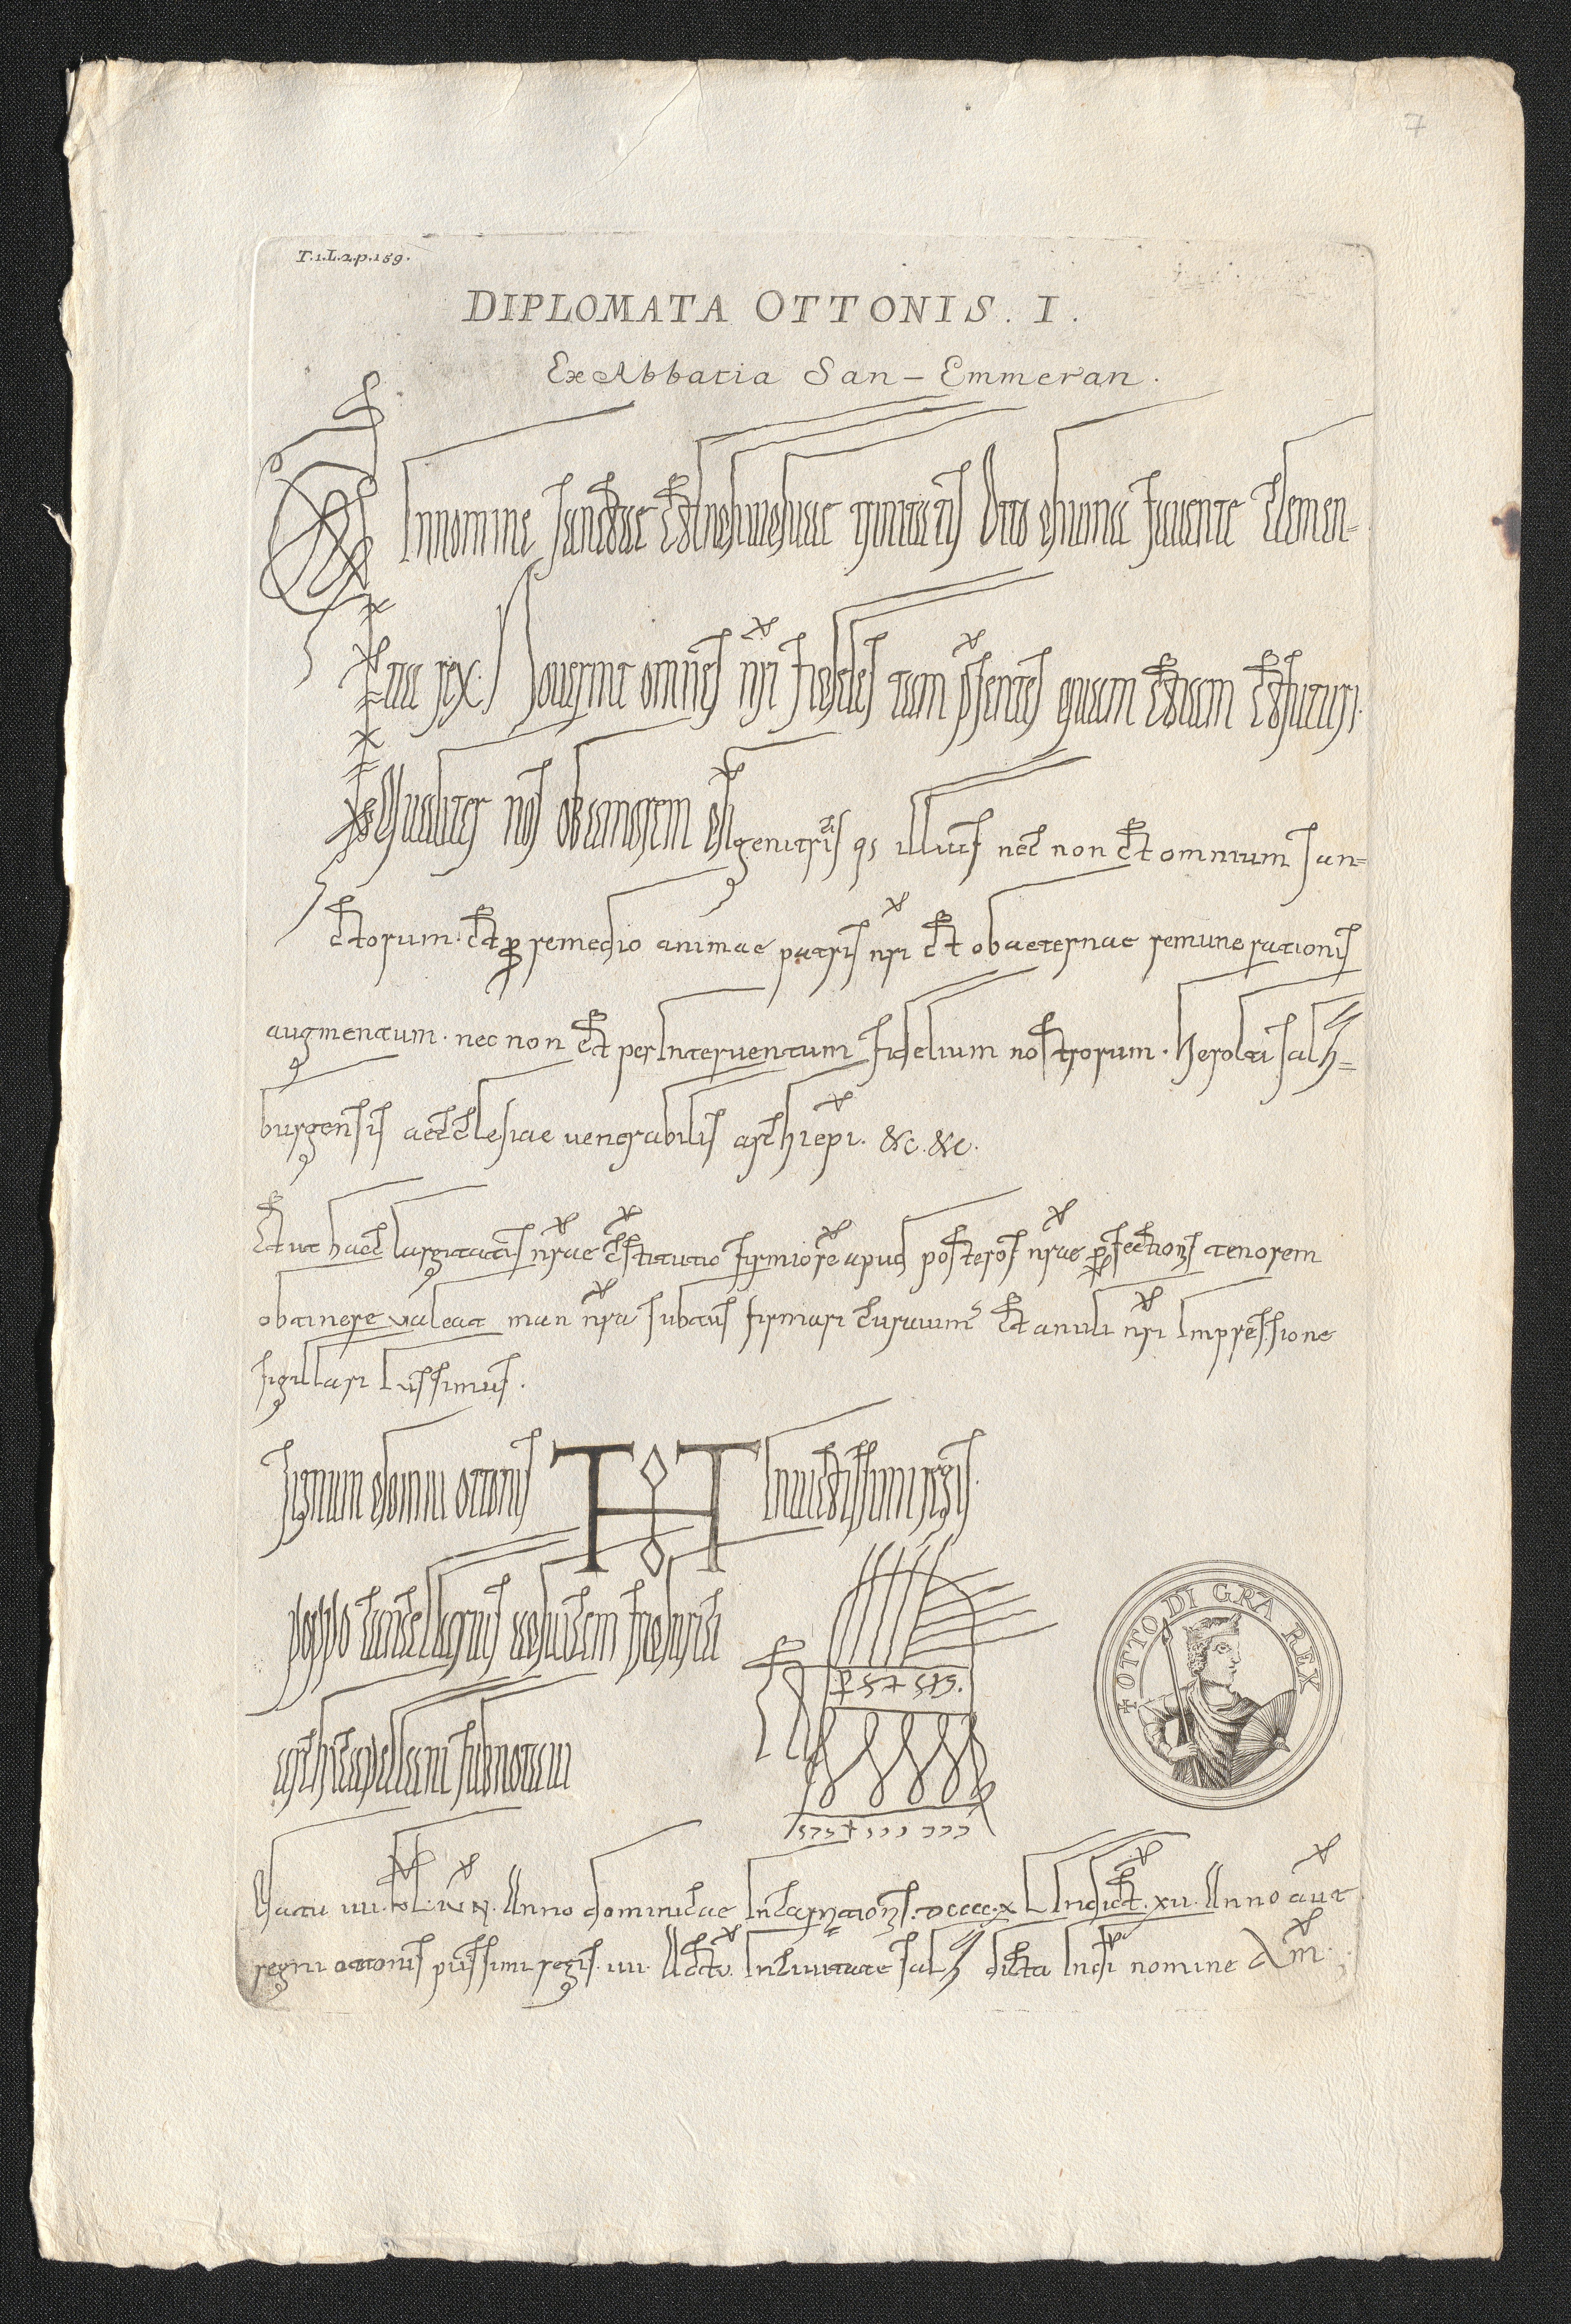 7
T.1.L.2.p.159.
DIPLOMATA OTTONIS. I.
Ex Abbatia San-Emmeran.
Innomine sanctae et Individuae trinitatis Otto divina favente clemen-
tia rex. Noverint omnes nri fideles tam psentes quam etiam et futuri.
Qualiter nos ob amorem di genitricis illius nec non et omnium san-
ctorum. et p remedio animae patris nri et ob aeternae remunerationis
augmentum. nec non et per Interventum fidelium nostrorum. herolti salz-
burgensis aecclesiae venerabilis archiepi. &c. &c.
Et ut haec largitatis nrae cstitutio firmiore apud posteros nrae pfectionis tenorem
obtinere valeat man nra subtus firmari curavim et anuli nri Impressione
sigillari Iussimus.
signum domini ottonis Invictissimi regis.
poppo cancellarius advicem friderici
archicapellani subnotavi
OTTO DI GRA REX
Data IIII. KL. IVN. Anno dominicae Incarnationis. DCCCC.XL Indict. XII. Anno aut
regni ottonis piissimi regis. IIII. Actu. In civitate salz dicta In di nomine